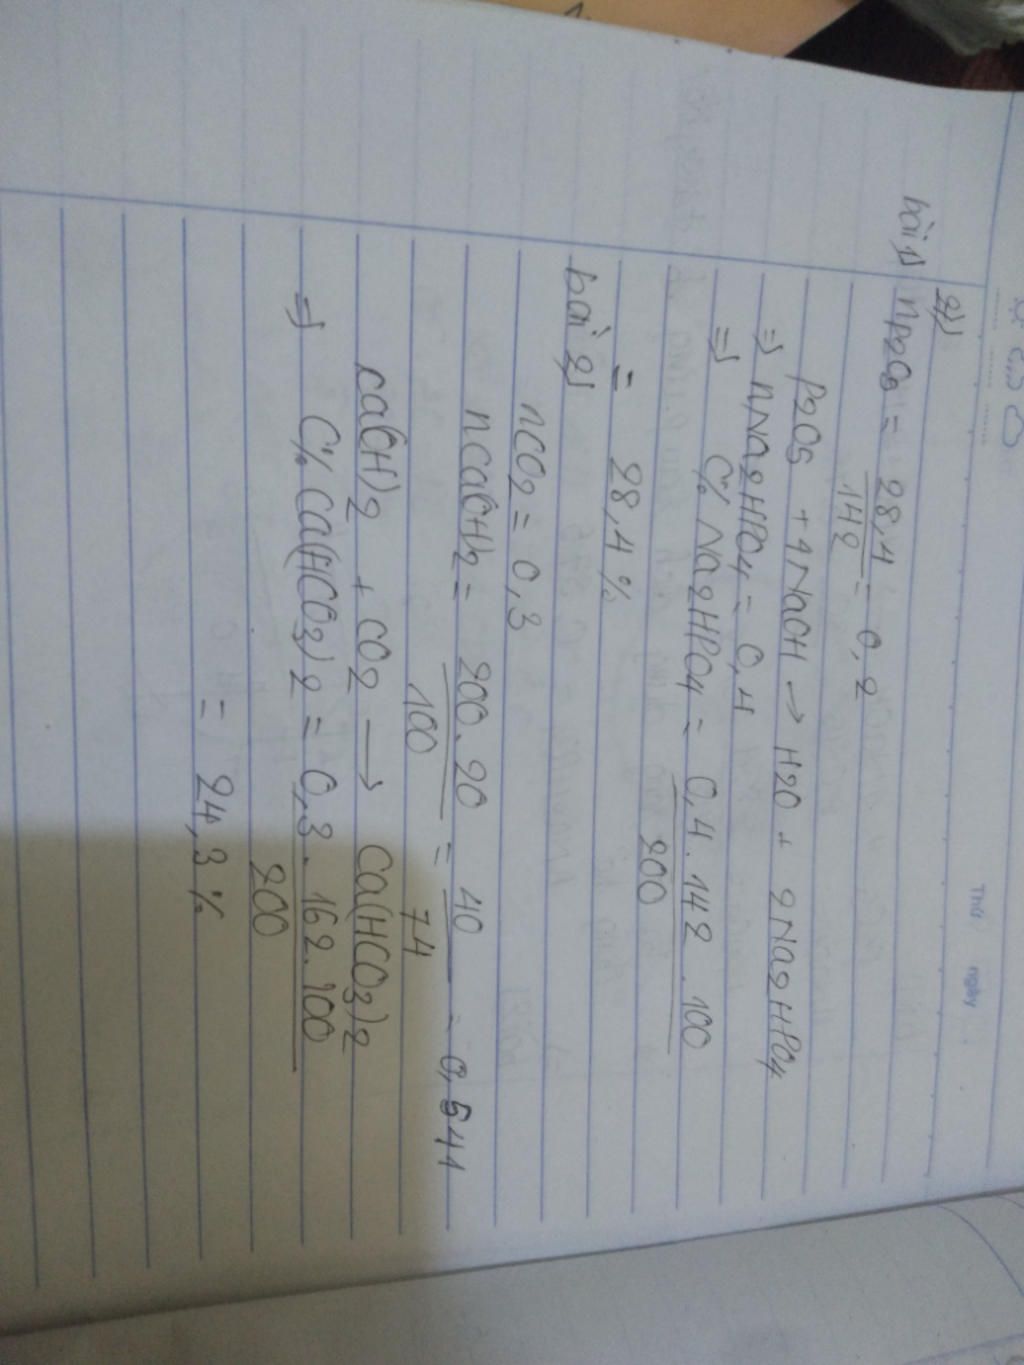 Thứ ngày
2)
bài 1) nP2O5 = 28,4 / 142 = 0,2
P2O5 + 4NaOH → H2O + 2Na2HPO4
⇒ nNa2HPO4 = 0,4
⇒ C% Na2HPO4 = 0,4.142.100 / 200
= 28,4%
bài 2)
nCO2 = 0,3
nCa(OH)2 = 200.20 / 100 = 40 / 74 = 0,541
Ca(OH)2 + CO2 → Ca(HCO3)2
⇒ C% Ca(HCO3)2 = 0,3.162.100 / 200
= 24,3%